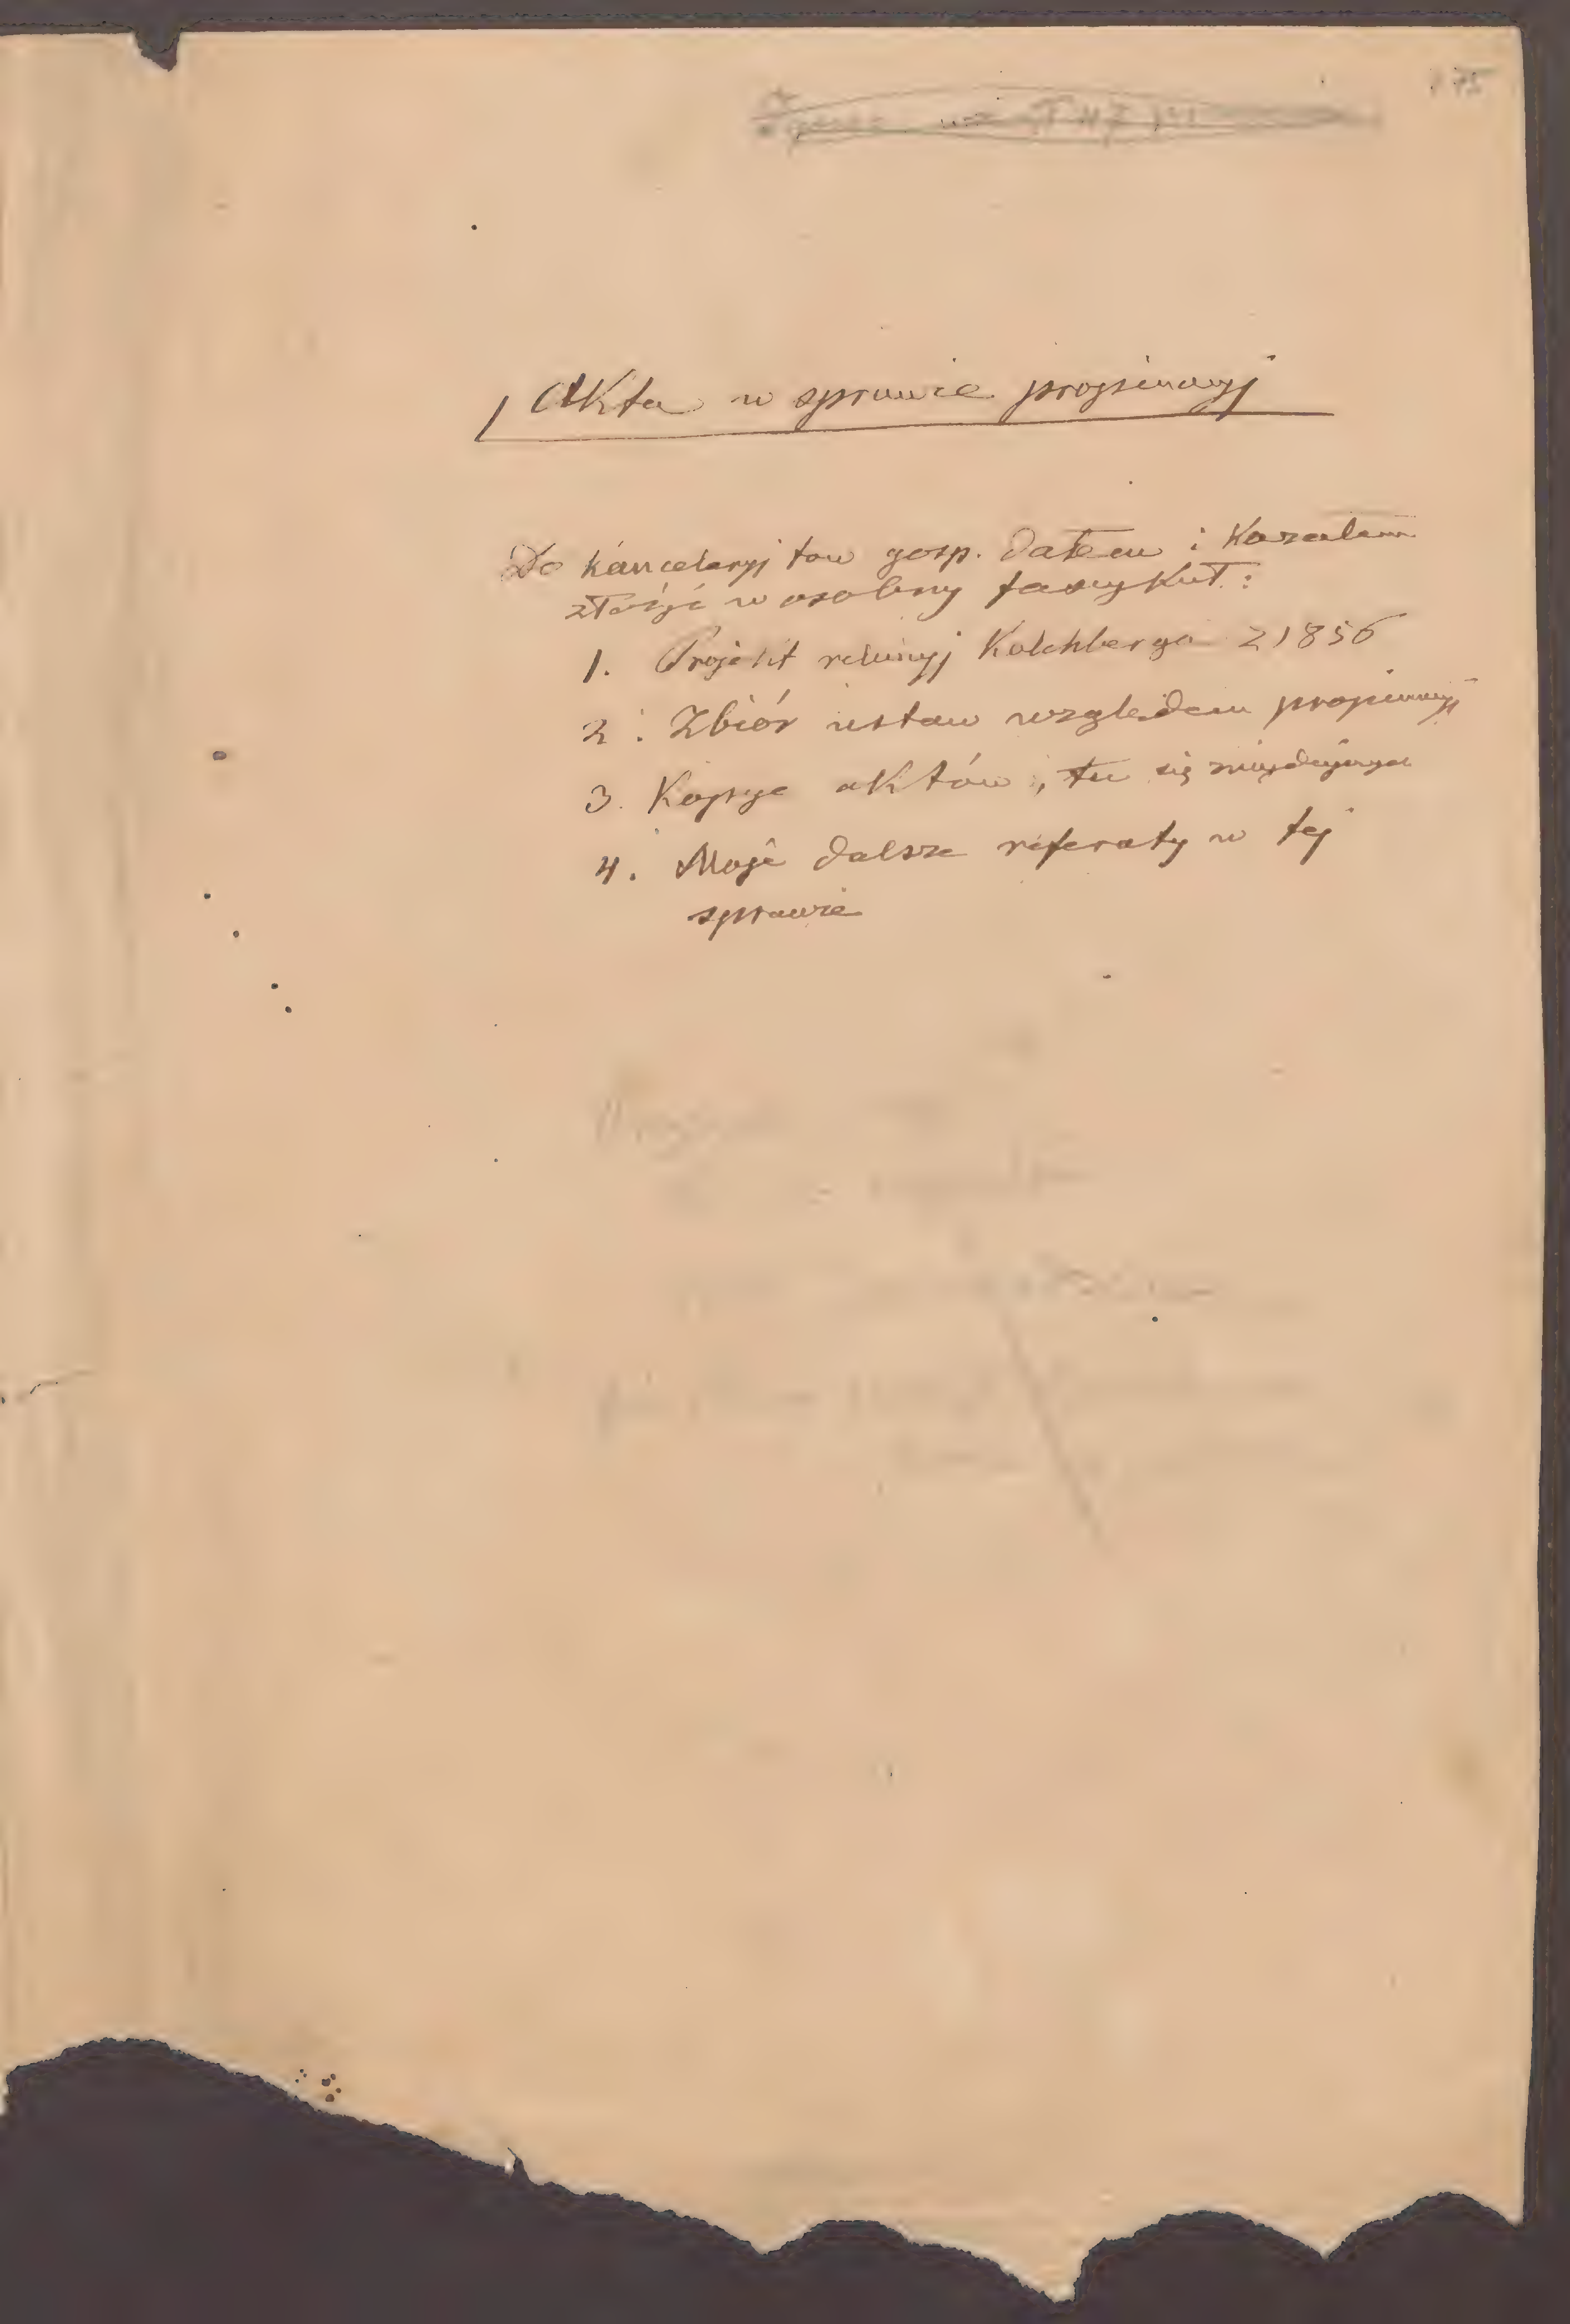 175
Akta w sprawie propinacyj
Do kancelaryj tow gosp. dałem i kazałem
złożyć w osobny fascykuł:
1. Projekt Kalchberga z 1856
2. Zbiór ustaw względem propinacyj
3. Kopye aktów, tu się znajdujących
4. Moje dalsze referaty w tej
sprawie